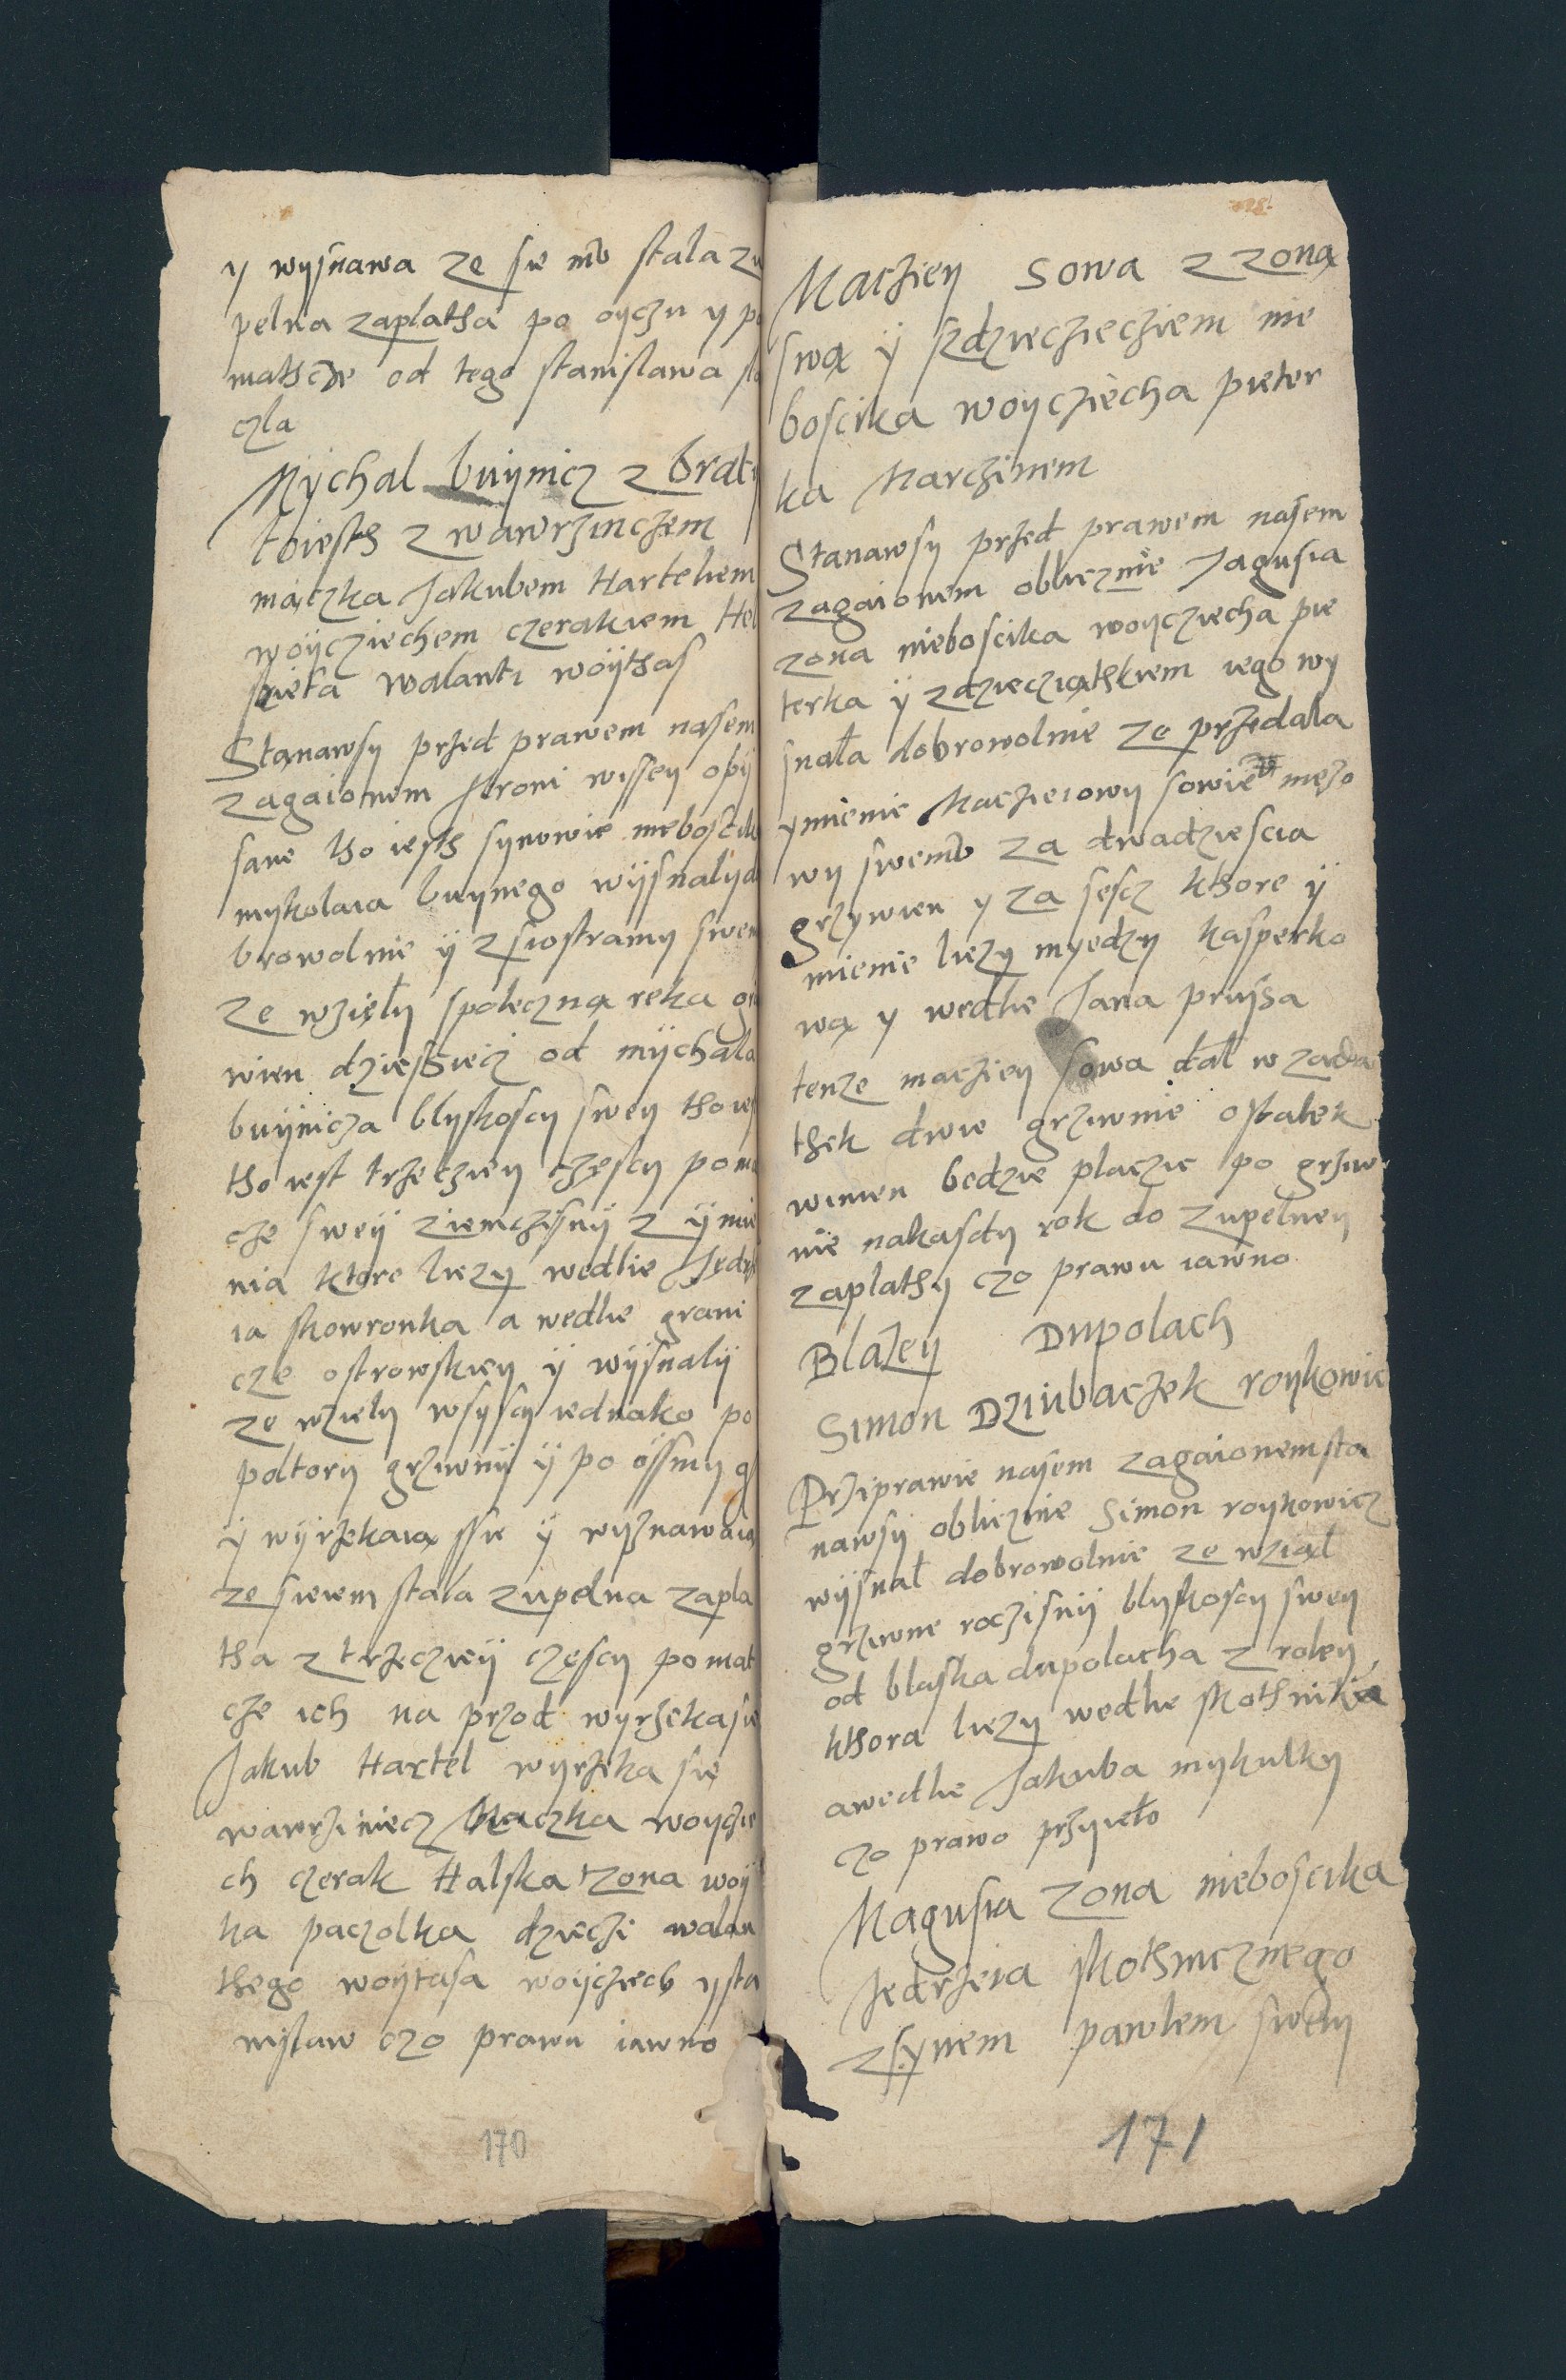 y wysnawa ze sie mu stala zu
pelna zaplatha po oyczu y po
mathcze od tego stanislawa
czla
Mychal buynicz z brati
toiesth z wawrzinczem
maczka Jakubem Hartelem
woycziechem czerakiem Hel
walanti woythas
Stanawsy przed prawem nasem
zagaionem stroni wissey opy
sane tho iesth synowie neboscika
mykolaia buynego wysnalydo
browolnie ÿ z siostramy swem
ze wzięly spoleczną reka grzi
wien dziessiecz od mychala
buynicza blyskoscy swey tho ies
tho iest trzecziey częscy poma
cze swey ziemczisny z ymie
nia ktore liezy wedlie Jędrze
ia skowronka a wedlie grani
cze ostrowskiey ÿ wysnaly
ze wziely wsyscy iednako po
poltory grziwny ÿ po ossmy g
ÿ wyrzekaią ssie ÿ wyznawaią
ze sieiem stala zupelna zapla
tha z trzecziey częscy pomat
cze ich na przod wyrzekasie
Jakub Hartel wyrzeka się
wawrziniecz Maczka woyczie
ch czerak Halska zona woy
ka paczolka dzieczi walan
thego woytasa woycziech ysta
nislaw czo prawu iawno
170
Macziey sowa z zoną
swą ÿ szdziecziecziem nie
boscika woycziecha pieter
ka Marczinem
Stanawsy przed prawem nasem
zagaionem obliecznie Jagusia
zona nieboscika woycziecha pie
terka ÿ zdziecziąthkiem iego wy
snała dobrowolnie ze przedala
ymienie Maczieiowy sowie męzo
wy swemu za dwadziescia
grzywien y za sescz kthore ÿ
mienie liezy myedzy kasperko
wą y wedlie Jana pruysa
tenze macziey sowa dal w zada
thek dwie grziwnie ostatek
winien bedzie placzic po grziw
nie nakasdy rok do zupelney
zaplathy czo prawu iawno
Blazey Dupolach
Simon Dziubaczek roykowic
Prziprawie nasem zagaionemsta
nawsy obliecznie Simon roykowicz
wysnal dobrowolnie ze wziąl
grziwne roczisny blyskoscy swey
od blaska dupolacha z roley
kthora liezy wedlie skothnika
awedlie Jakuba mykulky
czo prawo przyieło
Magusia zona nieboscika
Jedrzeia skothnicznego
zsynem pawlem swem
171